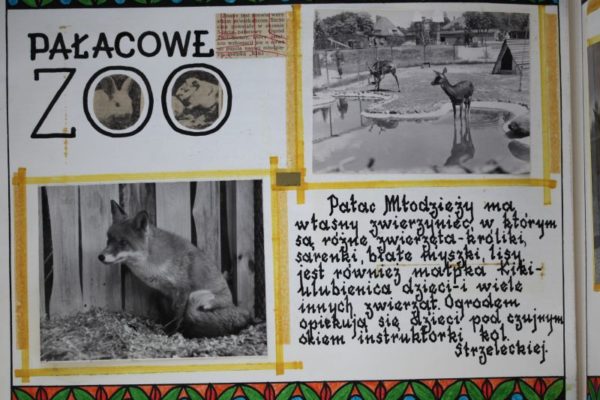 PAŁACOWE
ZOO
Pałac Młodzieży ma
własny zwierzyniec, w którym
są różne zwierzęta-króliki,
sarenki, białe myszki, lisy
jest również małpka Kiki-
ulubienica dzieci i wiele
innych zwierząt. Ogrodem
opiekują się dzieci pod czujnym
okiem instruktorki kol.
Strzeleckiej.